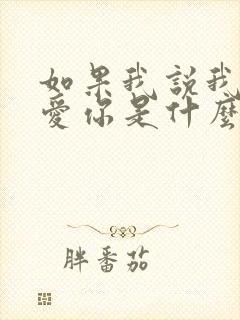 如果我説我
愛你是什麼
胖番茄